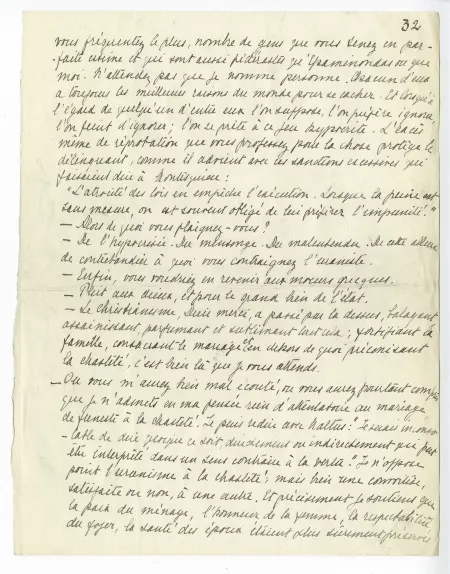 32
vous fréquentez le plus, nombre de gens que vous tenez en par-
-faite estime et qui sont aussi pédérastes qu'Épaminondas ou que
moi. N'attendez pas que je nomme personne. Chacun d'eux
a toujours les meilleures raisons du monde pour se cacher. Et lorsqu'à
l'égard de quelqu'un d'entre eux l'on suppose, l'on préfère ignorer,
l'on feint d'ignorer ; l'on se prête à ce jeu hypocrite. L'excès
même de réprobation que vous professez pour la chose protège le
délinquant, comme il advient avec les sanctions excessives qui
faisaient dire à Montesquieu :
"L'atrocité des lois en empêche l'exécution. Lorsque la peine est
sans mesure, on est souvent obligé de lui préférer l'impunité."
— Alors de quoi vous plaignez-vous ?
— De l'hypocrisie. Du mensonge. Du malentendu. De cette allure
de contrebandier à quoi vous contraignez l'uraniste.
— Enfin, vous voudriez en revenir aux mœurs grecques.
— Plût aux dieux, et pour le grand bien de l'état.
— Le Christianisme, Dieu merci, a passé par là dessus, balayant,
assainissant, parfumant et sublimant tout cela ; fortifiant la
famille, consacrant le mariage et en dehors de quoi préconisant
la chasteté, c'est bien là que je vous attends.
— Ou vous m'avez bien mal écouté, ou vous avez pourtant compris
que je n'admets en ma pensée rien d'attentatoire au mariage,
de funeste à la chasteté. Je peux redire avec Malthus : "Je serais inconso-
-lable de dire quoique ce soit, directement ou indirectement qui put
être interprété dans un sens contraire à la vertu." Je n'oppose
point l'uranisme à la chasteté, mais bien une convoitise,
satisfaite ou non, à une autre. Et précisément je soutiens que
la paix du ménage, l'honneur de la femme, la respectabilité
du foyer, la santé des époux étaient plus sûrement préservés